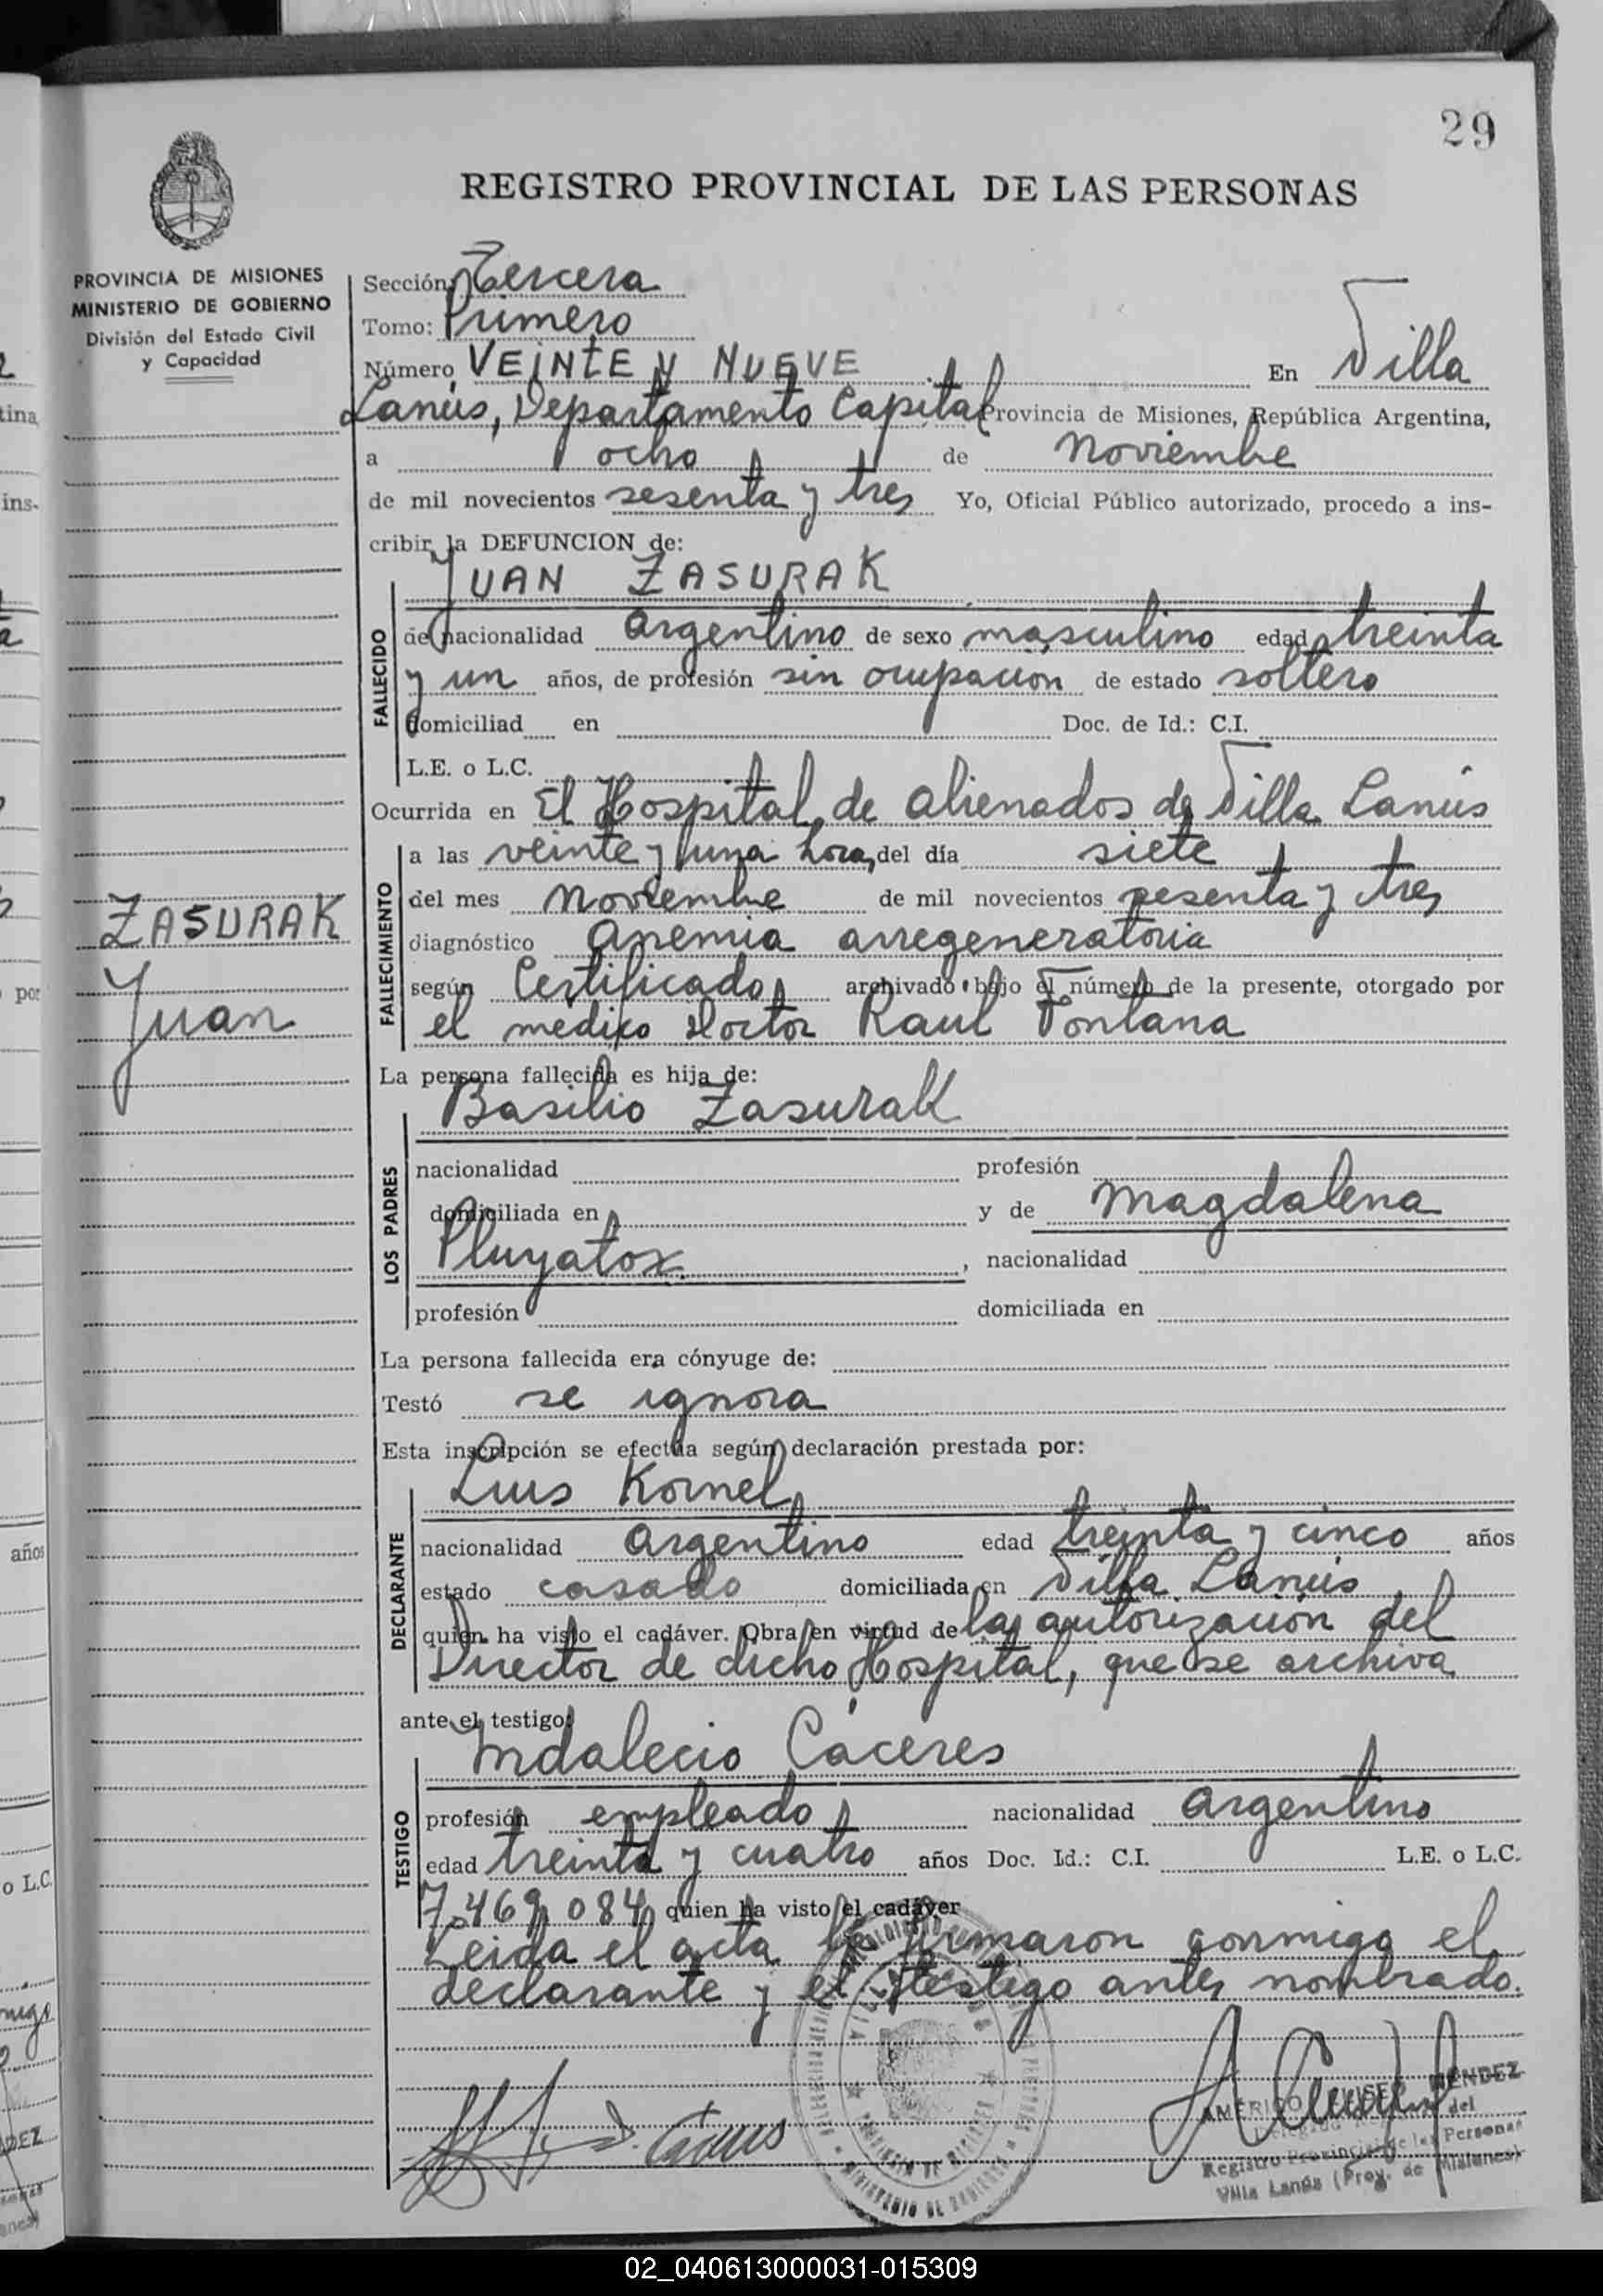 29
REGISTRO PROVINCIAL DE LAS PERSONAS
PROVINCIA DE MISIONES
MINISTERIO DE GOBIERNO
División del Estado Civil
y Capacidad
Sección Tercera
Tomo: Primero
Número VEINTE Y NUEVE En Villa
Lanús, Departamento Capital Provincia de Misiones, República Argentina,
a ocho de Noviembre
de mil novecientos sesenta y tres Yo, Oficial Público autorizado, procedo a ins-
cribir la DEFUNCION de:
JUAN ZASURAK
FALLECIDO
de nacionalidad argentino de sexo masculino edad treinta
y un años, de profesión sin ocupación de estado soltero
domiciliad en Doc. de Id.: C.I.
L.E. o L.C.
Ocurrida en El Hospital de alienados de Villa Lanús
FALLECIMIENTO
a las veinte y una hora, del día siete
del mes Noviembre de mil novecientos sesenta y tres
diagnóstico Anemia arregeneratoria
según Certificado archivado bajo el número de la presente, otorgado por
el medico Doctor Raul Fontana
ZASURAK
Juan
La persona fallecida es hija de:
Basilio Zasurak
LOS PADRES
nacionalidad profesión
domiciliada en y de Magdalena
Pluyatox, nacionalidad
profesión domiciliada en
La persona fallecida era cónyuge de:
Testó se ignora
Esta inscripción se efectúa según declaración prestada por:
Luis Kornel
DECLARANTE
nacionalidad argentino edad treinta y cinco años
estado casado domiciliada en Villa Lanús
quien ha visto el cadáver. Obra en virtud de la autorización del
Director de dicho Hospital, que se archiva
ante el testigo:
Indalecio Caceres
TESTIGO
profesión empleado nacionalidad argentino
edad treinta y cuatro años Doc. Id.: C.I. L.E. o L.C.
7.469.084 quien ha visto el cadáver
Leida el acta la firmaron conmigo el
declarante y el testigo antes nombrado.
PROVINCIA DE MISIONES
MINISTERIO DE GOBIERNO
AMERICO MENDEZ
Delegado del
Registro Provincial de las Personas
Villa Lanús (Prov. de Misiones)
02_040613000031-015309